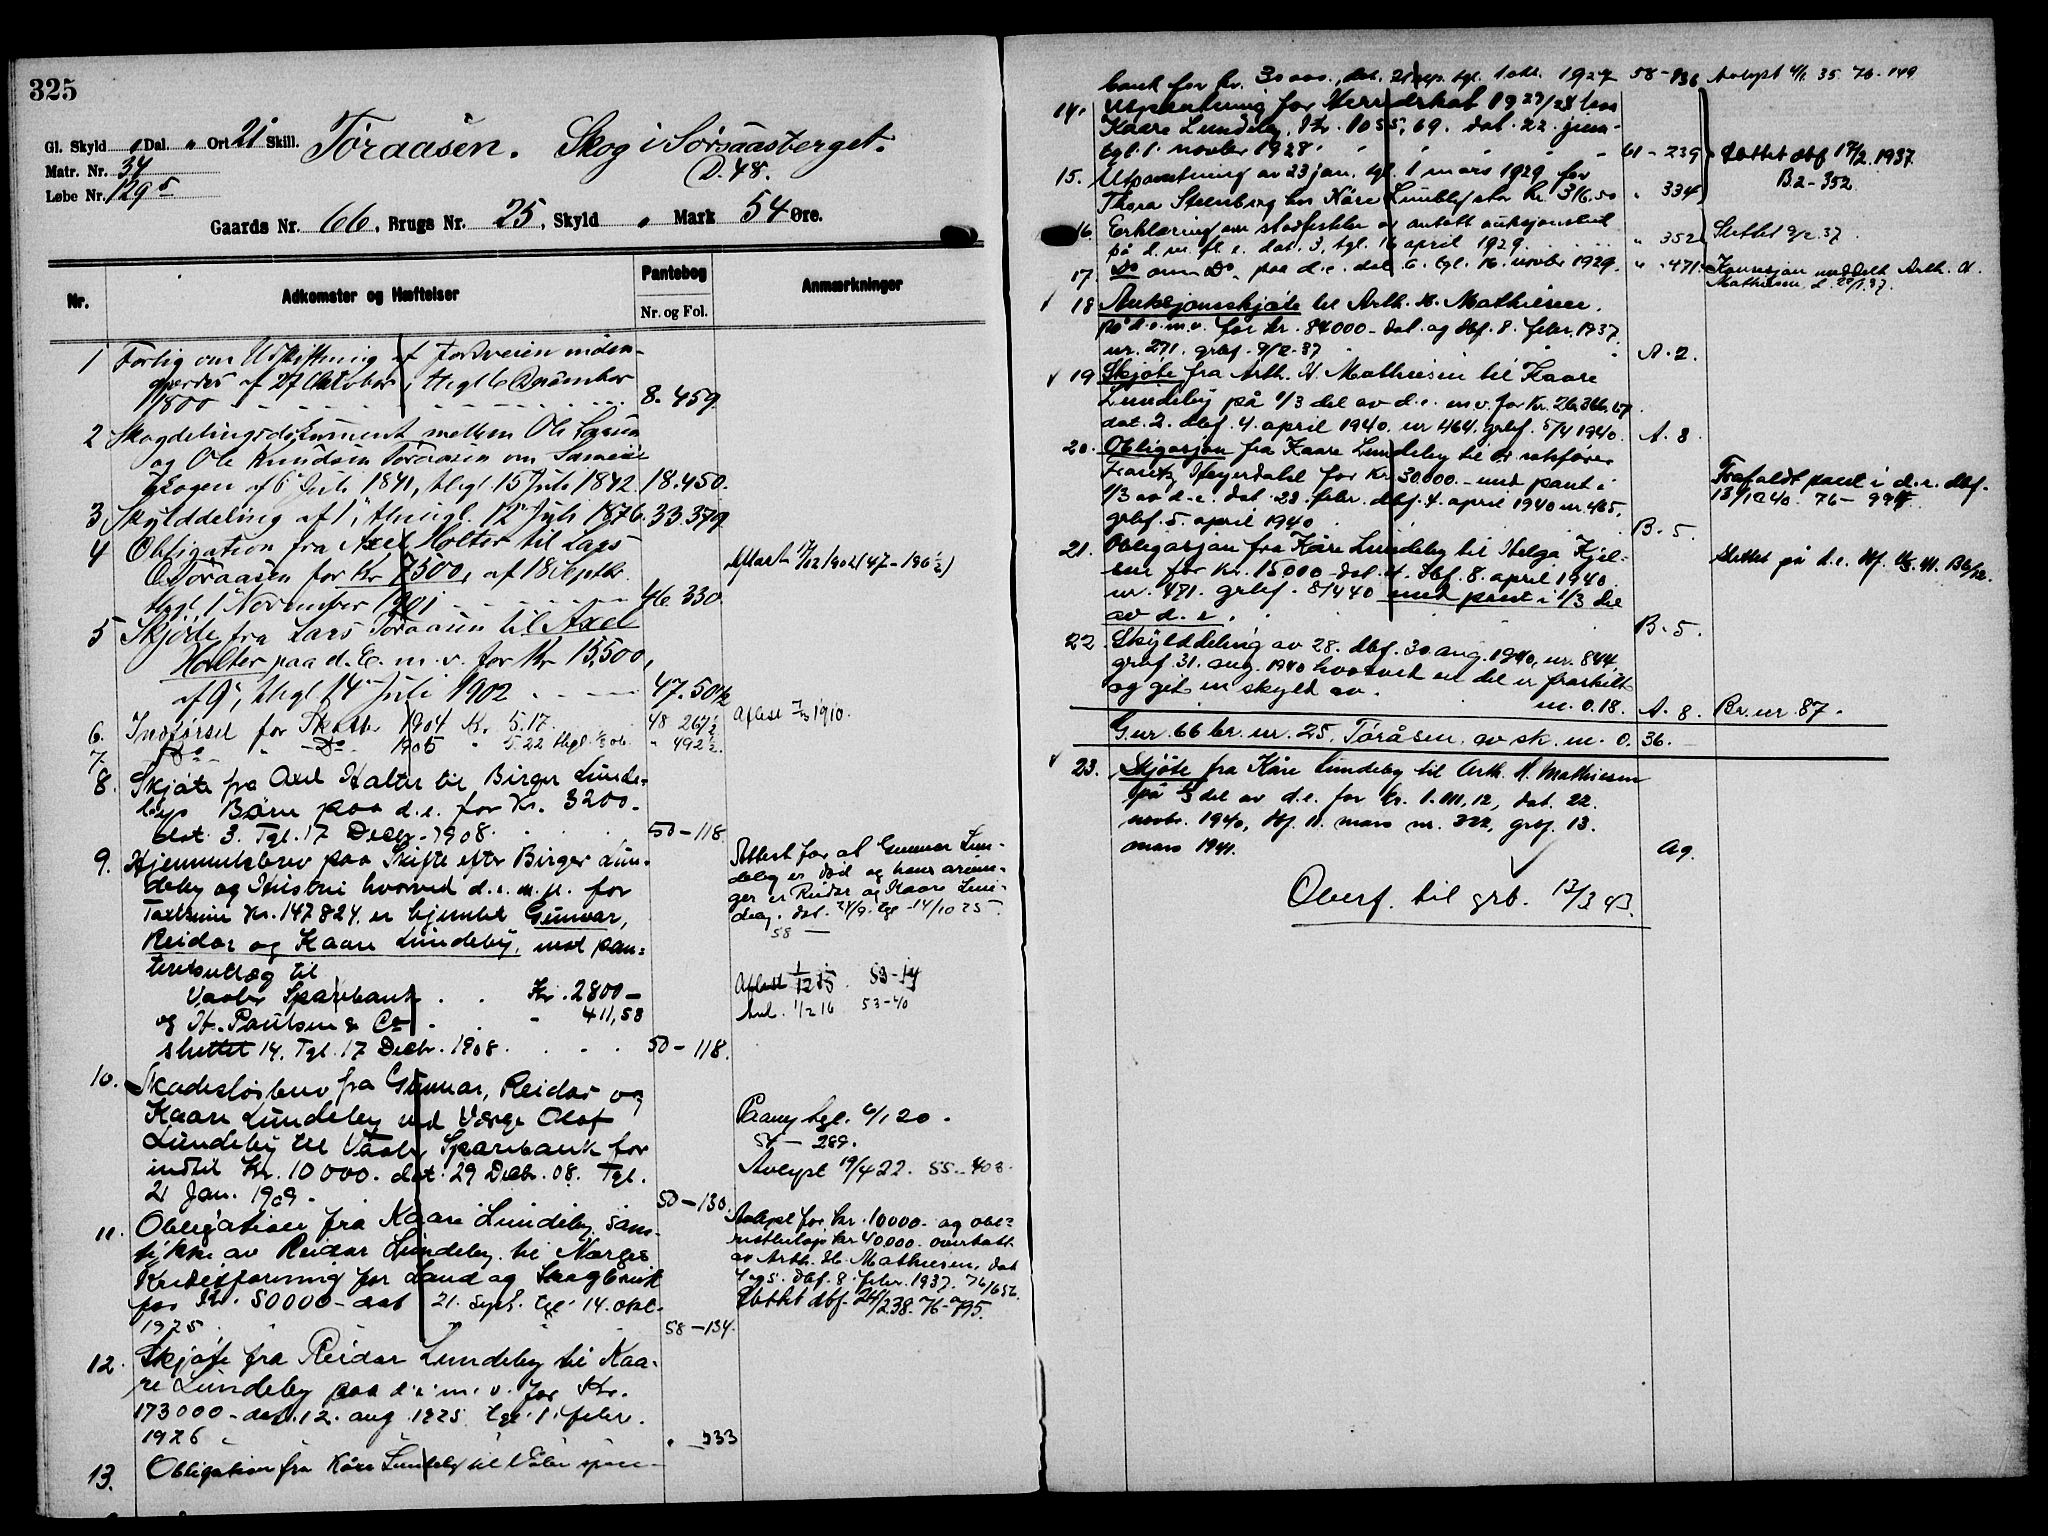 325
Gl. Skyld " Dal. " Ort 21 Skill. Toraasen. Skog i Sorsaasberget.
Matr. Nr. 34
D. 48.
Løbe Nr. 129 5
Gaards Nr. 66, Brugs Nr. 25, Skyld " Mark 54 Øre.
Nr.
Adkomster og Hæftelser
Pantebog
Nr. og Fol.
Anmærkninger
1 Forlig om Udskiftning af Jordveien inden-
gjerdes af 27 Oktober, thgl 6 December
1800 8. 459
2 Skogdelingsdokument mellem Ole
og Ole Knudsen Toraasen om
skogen af 6 Juli 1841, thgl 15 Juli 1842 18.450.
3 Skylddeling af 1, thingl. 12 Juli 1876 33.379
4 Obligation fra Axel Holter til Lars
O Toraasen for Kr 7500, af 18 Septbr.
thgl 1 November 1901 46. 330
Aflæst 1902 (47-196½)
5 Skjøde fra Lars Toraasen til Axel
Holter paa d. E. m. v. for Kr 15,500,
af 9, thgl 14 Juli 1902 47. 50½
6. Indførsel for Skatter 1904 Kr. 5.17. 48 267½
Aflæst 1910.
7. Do " Do 1905 " 5.22 thgl. " 492½
8. Skjøte fra Axel Holter til Birger Lunde-
bys Børn paa d. e. for Kr. 3200.
dat. 3. Tgl. 17 Decbr. 1908. 50-118
9. Hjemmelsbrev paa Skifte efter Birger Lun-
deby og Hustru hvorved d. e. m. fl. for
Taxtsum Kr. 147824. er hjemlet Gunnar,
Reidar og Kaare Lundeby, mot pan-
teretsutlæg til
Vaaler Sparebank Kr. 2800-
og H. Paulsen & Co " 411,58
sluttet 14. Tgl. 17 Decbr. 1908. 50-118.
Attest for at Gunnar Lun-
deby er død og hans arvin-
ger er Reidar og Kaare Lun-
deby. dat. 24/9. tgl. 14/10 25.
58 —
Aflæst 1/12 15. 53-14
Avl. 1/2 16 53-40
10. Skadesløsbrev fra Gunnar, Reidar og
Kaare Lundeby ved Værge Olaf
Lundeby til Vaaler Sparebank for
indtil Kr. 10000. dat. 29 Decbr. 08. Tgl.
21 Jan. 1909. 50-130.
Paany tgl. 6/1 20.
54 — 289.
Avlyst 19/4 22. 55-408.
11. Obligation fra Kaare Lundeby, sam-
tykke av Reidar Lundeby til Norges
Kreditforening for Land og Skogbruk
for Kr. 50000- dat 21. sept. tgl. 14. okt.
1925 58-134.
Avlyst for kr. 10000- og obl.
restbeløp kr 40.000- overtatt
av Arth. H. Mathiesen, dat
dbf. 8. febr. 1937. 76/656.
Slettet dbf. 24/2 38. 76-795.
12. Skjøte fra Reidar Lundeby til Kaa-
re Lundeby paa d. e. m. v. for Kr.
173000- dat. 12. aug. 1925 tgl. 1. febr.
1926 " 333
13. Obligation fra Kåre Lundeby til Våler spare-
bank for kr. 30000., dat. 21 sep. tgl. 1 okt. 1927 58-936 Avlyst 4/1 35. 76-149
14. Utpantning for Herredskat 1927/28 hos
Kaare Lundeby, Kr. 1055,69. dat. 22. juni-
tgl. 1. novbr 1928. 61-239 Slettet dbf 17/2. 1937
B.2-352
15. Utpantning av 23 jan. tgl. 1 mars 1929 for
Thora Stenberg hos Kåre Lundeby stor kr. 316.50 " 334
16. Erklæring om stadfestelse av antatt auksjonsbud
på d. m. fl. e. dat. 3, tgl. 16 april 1929. " 352 Slettet 9/2. 37
17. Do om Do. paa d. e. dat. 6. tgl. 16. novbr 1929. " 471. Konsesjon meddelt Arth. H.
Mathiesen, d. 20/1.37.
✓ 18 Auksjonsskjøte til Arth. H. Mathiesen.
på d. e. m. v. for kr. 84000- dat. og dbf. 8. febr. 1937
nr. 271. grbf. 9/2-37 A. 2.
✓ 19 Skjøte fra Arth. H. Mathiesen til Kaare
Lundeby på 1/3 del av d. e. m v. for Kr. 26.366,67.
dat. 2. dbf. 4. april 1940. nr 464. grbf. 5/4 1940. A. 8.
20. Obligasjon fra Kaare Lundeby til o. r. sakfører
Heyerdahl for Kr. 30000.- med pant i
1/3 av d. e. dat. 28. febr. dbf. 4. april 1940 nr. 465.
grbf. 5. april 1940 B. 5.
Frafaldt pant i d. e. dbf.
13/12 40. 76-
21. Obligasjon fra Kåre Lundeby til Helga Kjel-
sen for kr. 15000- dat. 4. dbf. 8. april 1940.
nr. 471. grbf. 8/4 40 med pant i 1/3 del
av d. e. B. 5.
Slettet på d. e. dbf. 41.
22. Skylddeling av 28. dbf. 30 aug. 1940, nr. 844,
grbf. 31. aug. 1940 hvorved en del er fraskilt
og git en skyld av. m. 0.18. A. 8. Br. nr. 87.
Gnr. 66 br. nr. 25. Toråsen. av sk. m. 0. 36.
✓ 23. Skjøte fra Kåre Lundeby til Arth. H. Mathiesen
på 1/3 del av d. e. for kr. 1.111,12, dat. 22.
novbr. 1940, dbf. 11. mars nr. 322, grbf. 13.
mars 1941. A 9.
Overf. til grb. 12/3 43.